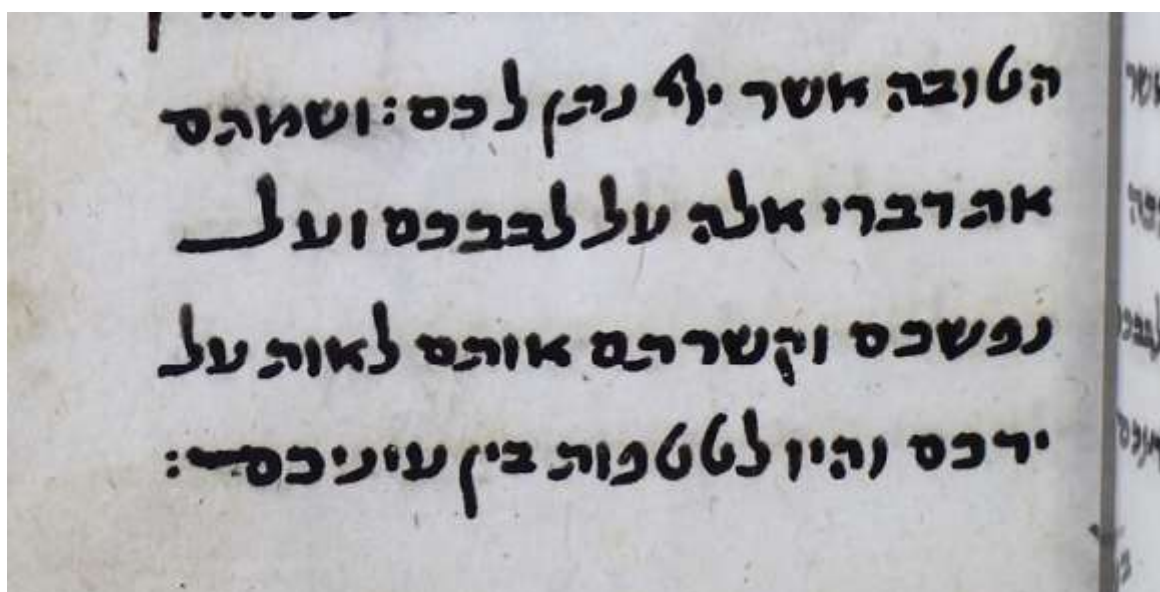 הטובה אשר ייי נתן לכם: ושמתם
את דברי אלה על לבבכם ועל
נפשכם וקשרתם אותם לאות על
ידכם והיו לטטפות בין עיניכם: